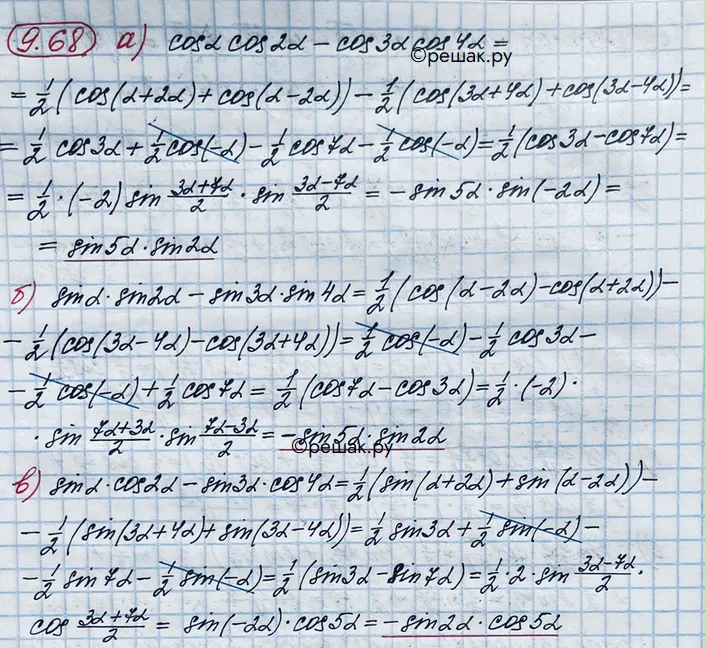 9.68 а) cosα cos2α − cos3α cos4α =
©решак.ру
= 1/2 (cos(α+2α) + cos(α−2α)) − 1/2 (cos(3α+4α) + cos(3α−4α)) =
= 1/2 cos3α + 1/2 cos(−α) − 1/2 cos7α − 1/2 cos(−α) = 1/2 (cos3α − cos7α) =
= 1/2 · (−2) sin (3α+7α)/2 · sin (3α−7α)/2 = − sin5α · sin(−2α) =
= sin5α · sin2α
б) sinα · sin2α − sin3α · sin4α = 1/2 (cos(α−2α) − cos(α+2α)) −
− 1/2 (cos(3α−4α) − cos(3α+4α)) = 1/2 cos(−α) − 1/2 cos3α −
− 1/2 cos(−α) + 1/2 cos7α = 1/2 (cos7α − cos3α) = 1/2 · (−2) ·
· sin (7α+3α)/2 · sin (7α−3α)/2 = − sin5α · sin2α
©решак.ру
в) sinα · cos2α − sin3α · cos4α = 1/2 (sin(α+2α) + sin(α−2α)) −
− 1/2 (sin(3α+4α) + sin(3α−4α)) = 1/2 sin3α + 1/2 sin(−α) −
− 1/2 sin7α − 1/2 sin(−α) = 1/2 (sin3α − sin7α) = 1/2 · 2 · sin (3α−7α)/2 ·
cos (3α+7α)/2 = sin(−2α) · cos5α = − sin2α · cos5α